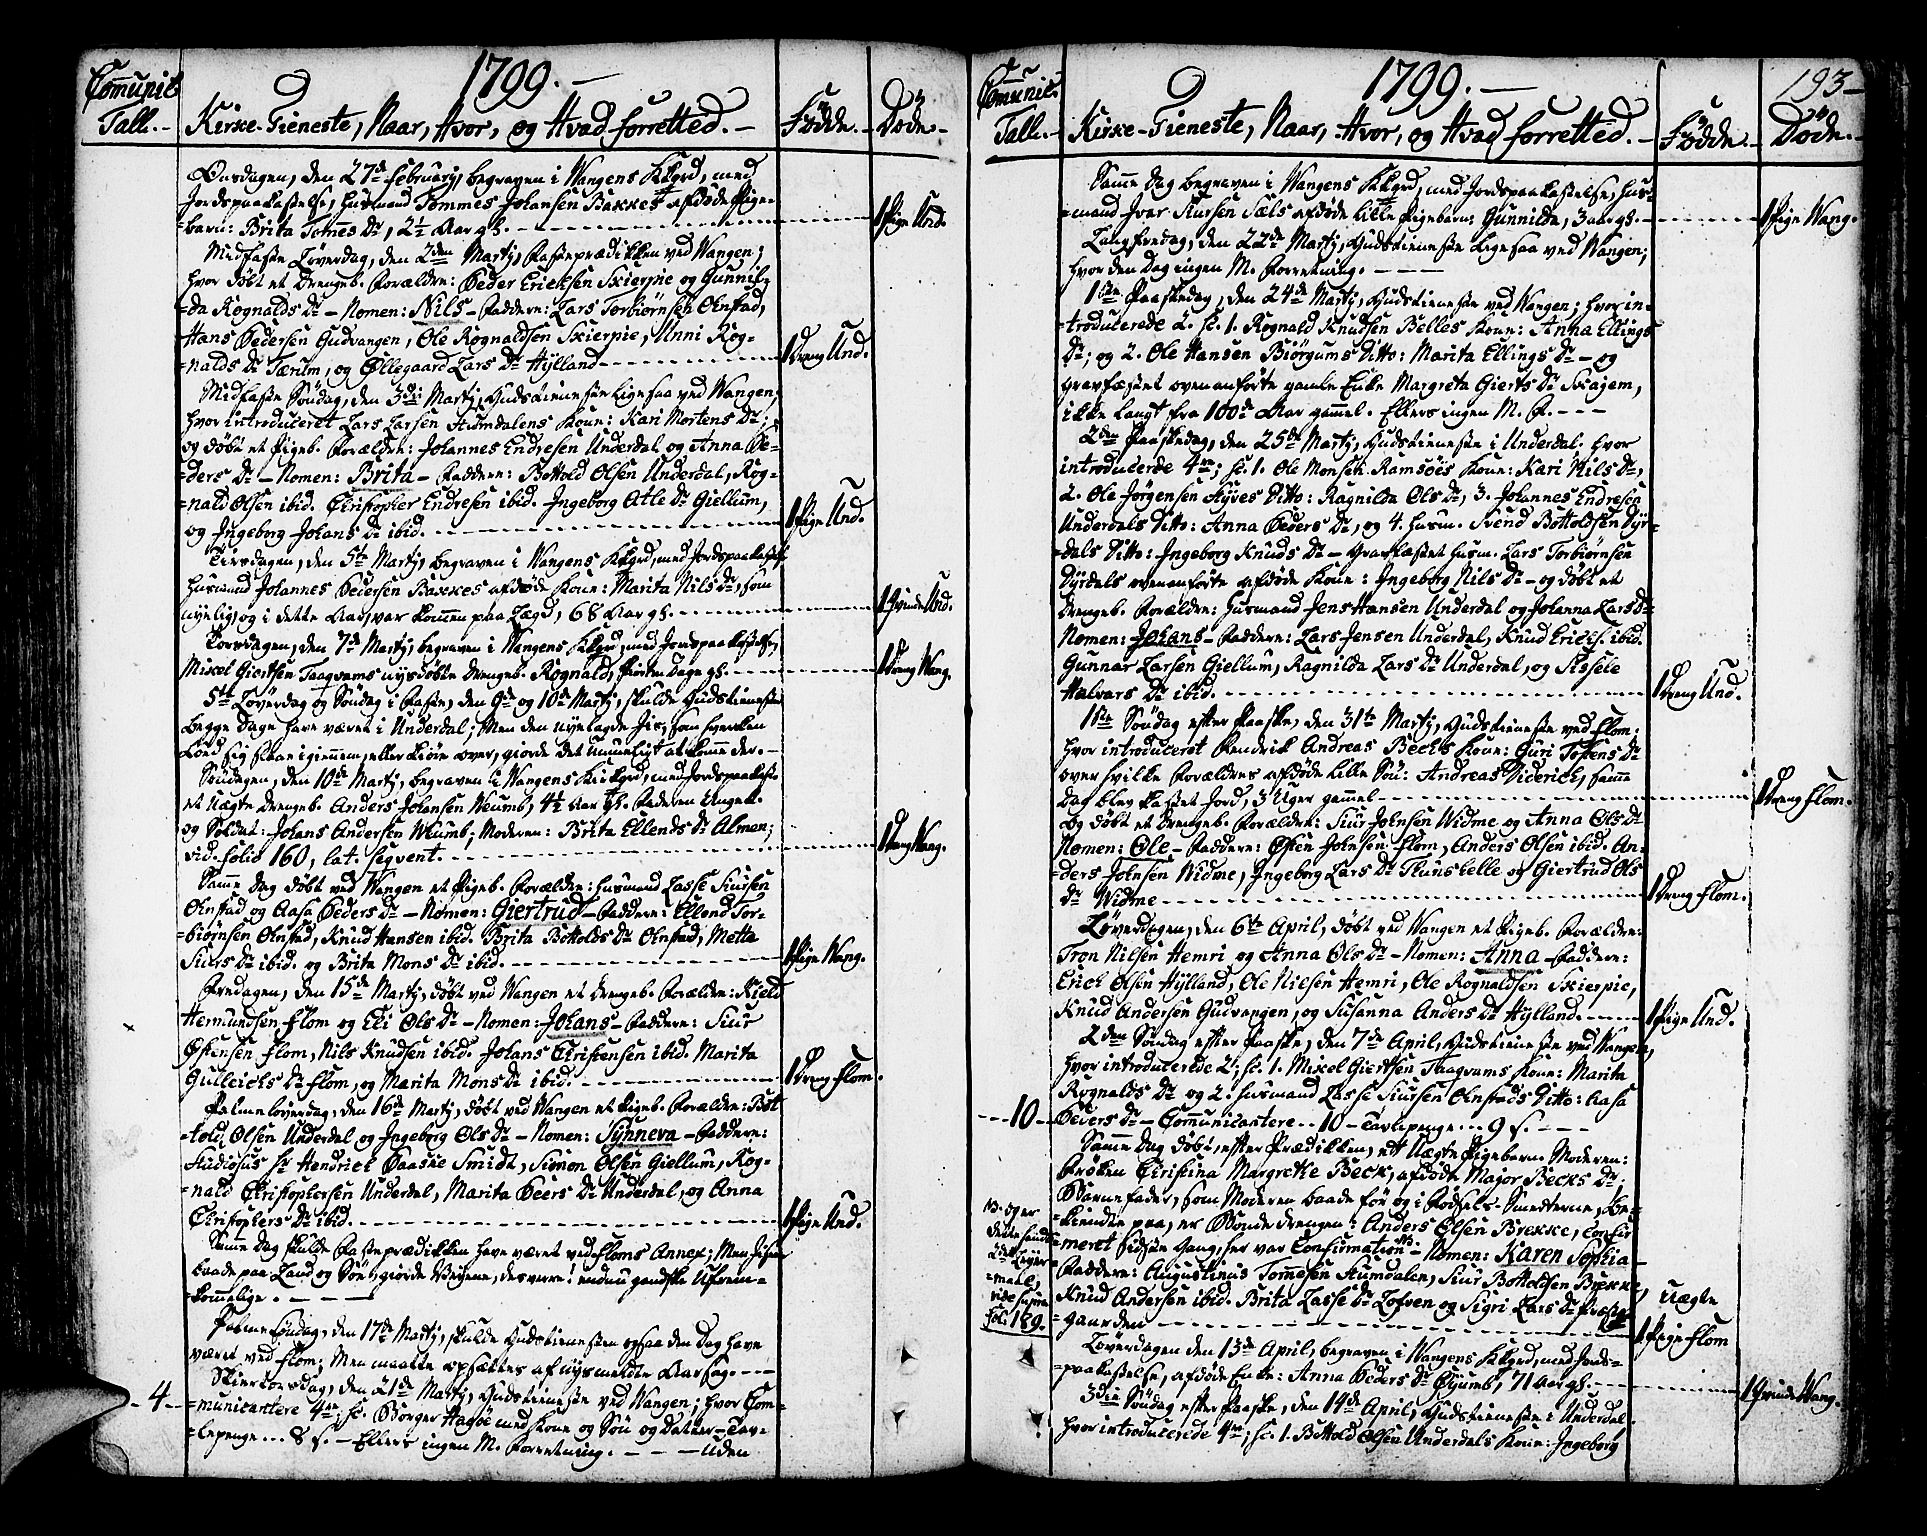 Comunit:
Tall.-
1799.-
Kirke-Tieneste, Naar, Hvor, og Hvad forretted.-
Födde.-
Döde.-
Onsdagen, den 27de Februarij, begraven i Wangens Kkgrd, med
Jordspaakastelse, husmand Tommes Johansen Bakkes afdöde Pige-
barn: Brita Tomes Dr, 2½ Aar gl.
1 Pige Und.
Midfaste Löverdag, den 2den Martij, Fasteprædikken ved Wangen;
hvor döbt et Drengeb. Forældre: Peder Ericksen Skierpie og Gunnil-
da Rognalds Dr - Nomen: Nils - Faddere: Lars Torbiörnsen Olnstad,
Hans Pedersen Gudvangen, Ole Rognaldsen Skierpie, Unni Rog-
=nalds Dr Tærum, og Öllegaard Lars Dr Hylland
1 Dreng Und.
Midfaste Söndag, den 3die Martij, Gudstienesten ligesaa ved Wangen;
hvor introduceret Lars Larsen Humdalens Kone: Kari Mortens Dr;
og döbt et Pigeb. Forældre: Johannes Endresen Underdal og Anna Pe-
=ders Dr - Nomen: Brita - Faddere: Bottold Olsen Underdal, Rog-
=nald Olsen ibid. Christopher Endresen ibid. Ingeborg Atle Dr Giellum,
og Ingeborg Johans Dr ibid.
1 Pige Und.
Tirsdagen, den 5te Martij, begraven i Wangens Kkgrd, med Jordspaakastelse
husmand Johannes Pedersen Bakkes afdöde Kone: Marita Nils Dr, som
nylig, og i dette Aar, var kommen paa Lægd, 68 Aar gl.
1 Qvinde Und.
Torsdagen, den 7de Martij, begraven i Wangens Kkgrd, med Jordspaakastelse,
Mikel Giertsen Taagvams nysdöbte Drengeb. Rognald, fiorten Dage gl.
1 Dreng Wang.
5te Löverdag og Söndag i Faste, den 9de og 10de Martij, skulde Gudstienesten
begge Dage have været i Underdal; Men den nyelagde Jis, som hverken
lod sig slaae igiennem, eller kiöre over, giorde det umueligt at komme der.-
Söndagen, den 10de Martij, begraven i Wangens Kirkgrd, med Jordspaakast.
et Uægte Drengeb. Anders Johansen Wumb, 4½ Aar gl. Faderen Ungek.
og Soldat: Johans Andersen Wumb; Moderen: Brita Ellends Dr Almen;
vid. folio 160, lat. seqvent.
1 Dreng Wang.
Samme Dag döbt ved Wangen et Pigeb. Forældre: husmand Lasse Siursen
Olnstad og Aasa Peders Dr - Nomen: Giertrud - Faddere: Ellend Tor-
=biörnsen Olnstad, Knud Hansen ibid. Brita Bottolds Dr Olnstad, Mette
Siurs Dr ibid. og Brita Mons Dr ibid.
1 Pige Wang.
Fredagen, den 15de Martij, döbt ved Wangen et Drengeb. Forældre: Kield
Hermundsen Flom og Eli Ols Dr - Nomen: Johans - Faddere: Siur
Östensen Flom, Nils Knudsen ibid. Johans Christensen ibid. Marita
Gulleicks Dr Flom, og Marita Mons Dr ibid.
1 Dreng Flom.
Palmelöverdag, den 16de Martij, döbt ved Wangen et Pigeb. Forældre: Bot-
=told Olsen Underdal og Ingeborg Ols Dr - Nomen: Synneva - Faddere:
Studiosus Sr Hendrick Daaske Smidt, Simon Olsen Giellum, Rog-
=nald Christophersen Underdal, Marita Peers Dr Underdal, og Anna
Christophers Dr ibid.
1 Pige Und.
Samme Dag skulde Fasteprædikken have været ved Floms Annex; Men Jisen
baade paa Land og Söe, giorde Veiene, desværre! endnu gandske Ufrem-
=kommelige.
Palme Söndag, den 17de Martij, skulde Gudstienesten ogsaa den Dag have
været ved Flom; Men maatte opsættes af nysmeldte Aarsag.
Skiertorsdag, den 21de Martij, Gudstienesten ved Wangen; hvor Com-
- 4 -
=municantere 4re; sc. Borger Haase med Kone og Sön og Datter - Tav-
=lepenge... 8 s. - Ellers ingen M. Forretning. - - - Uden
Comunit.
Tall.-
1799.-
193-
Kirke-Tieneste, Naar, Hvor, og Hvad forretted.-
Födde.-
Döde.-
Samme Dag begraven i Wangens Kkgrd, med Jordspaakastelse, hus-
=mand Iver Siursen Sæls afdöde lille Pigebarn: Gunnilda, 3 aar gl.
1 Pige Wang.
Langfredag, den 22de Martij, Gudstienesten ligesaa ved Wangen;
hvor den Dag ingen M. Forretning.
1ste Paaskedag, den 24de Martij, Gudstienesten ved Wangen; hvor in-
=troducerede 2. sc. 1. Rognald Knudsen Belles Kone: Anna Ellings
Dr; og 2. Ole Hansen Biörgums Ditto: Marita Ellings Dr - og
gravfæstet ovenanförte gamle Enke Margreta Gierts Dr Skajem,
ikke langt fra 100de Aar gammel. Ellers ingen M. F.
2den Paaskedag, den 25de Martij, Gudstienesten i Underdal. hvor
introducerede 4re; sc. 1. Ole Monsen Ramsöes Kone: Kari Nils Dr,
2. Ole Jörgensen Hyves Ditto: Ragnilda Ols Dr, 3. Johannes Endresen
Underdals Ditto: Anna Peders Dr, og 4. husm. Svend Bottoldsen Dyr-
=dals Ditto: Ingeborg Knuds Dr - Gravfæstet husm. Lars Torbiörnsen
Dyrdals ovenanförte afdöde Kone: Ingeborg Nils Dr - og döbt et
Drengeb. Forældre: husmand Jens Hansen Underdal og Johanna Lars Dr
Nomen: Johans - Faddere: Lars Jensen Underdal, Knud Ericks. ibid.
Gunnar Larsen Giellum, Ragnilda Lars Dr Underdal, og Sissele
Halvars Dr ibid.
1 Dreng Und.
1ste Söndag efter Paaske, den 31te Martij, Gudstienesten ved Flom;
hvor introduceret Fendrick Andreas Becks Kone: Guri Tostens Dr
over hvilke Forældres afdöde lille Sön: Andreas Diderich, samme
Dag blev kastet Jord, 3 Uger gammel
1 Dreng Flom.
Og döbt et Drengeb. Forældre: Siur Johnsen Widme og Anna Ols Dr
Nomen: Ole - Faddere: Östen Johnsen Flom, Anders Olsen ibid. An-
=ders Johnsen Widme, Ingeborg Lars Dr Thunshelle og Giertrud Ols
Dr Widme
1 Dreng Flom.
Löverdagen, den 6te April, döbt ved Wangen et Pigeb. Forældre:
Tron Nilsen Hemri og Anna Ols Dr - Nomen: Anna - Faddere:
Erick Olsen Hylland, Ole Nilsen Hemri, Ole Rognaldsen Skierpie,
Knud Andersen Gudvangen, og Susanna Anders Dr Hylland.
1 Pige Und.
2den Söndag efter Paaske, den 7de April, Gudstienesten ved Wangen,
hvor introducerede 2; sc. 1. Mikel Giertsen Taagvams Kone: Marita
Rognalds Dr og 2. husmand Lasse Siursen Olnstads Ditto: Aasa
- - 10 -
Peders Dr - Communicantere.. 10 - Tavlepenge... 9 s.
Samme Dag döbt, efter Prædikken, ett Uægte Pigebarn. Moderen:
Fröken Christina Margrethe Beck, afdöde Major Becks Dr;
Barnefader, som Moderen baade för og i Födsels-Smerterne, be-
=kiendte paa, er Bonde drengen: Anders Olsen Brekke, Confir-
=meret sidste Gang, her var Confirmation NB - Nomen: Karen Sophia -
NB. og er
dette hendes
2det Leyer-
=maal,
vide supra
fol: 189.
Faddere: Augustinus Tommesen Humdalen, Siur Bottoldsen Brekke,
Knud Andersen ibid. Brita Lasse Dr Lofven og Sigri Lars Dr Præste-
=gaarden
Uægte
1 Pige Flom
Löverdagen den 13de April, begraven i Wangens Kkgrd, med Jords-
=paakastelse, afdöde Enke: Anna Peders Dr Öyumb, 71 Aar gl.
1 Qvinde Wang.
3die Söndag efter Paaske, den 14de April, Gudstienesten i Underdal.
hvor introducerede 4re; sc. 1. Bottold Olsen Underdals Kone: Ingeborg